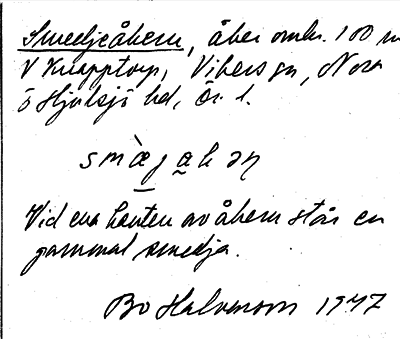 Smedjeåkern, åker omkr. 100 m
V Knapptorp, Vibers gn, Nora
o Hjulsjö bd, Ör. l.
smæ̀jakəṇ
Vid ena kanten av åkern står en
gammal smedja.
Bo Halvarson 1947